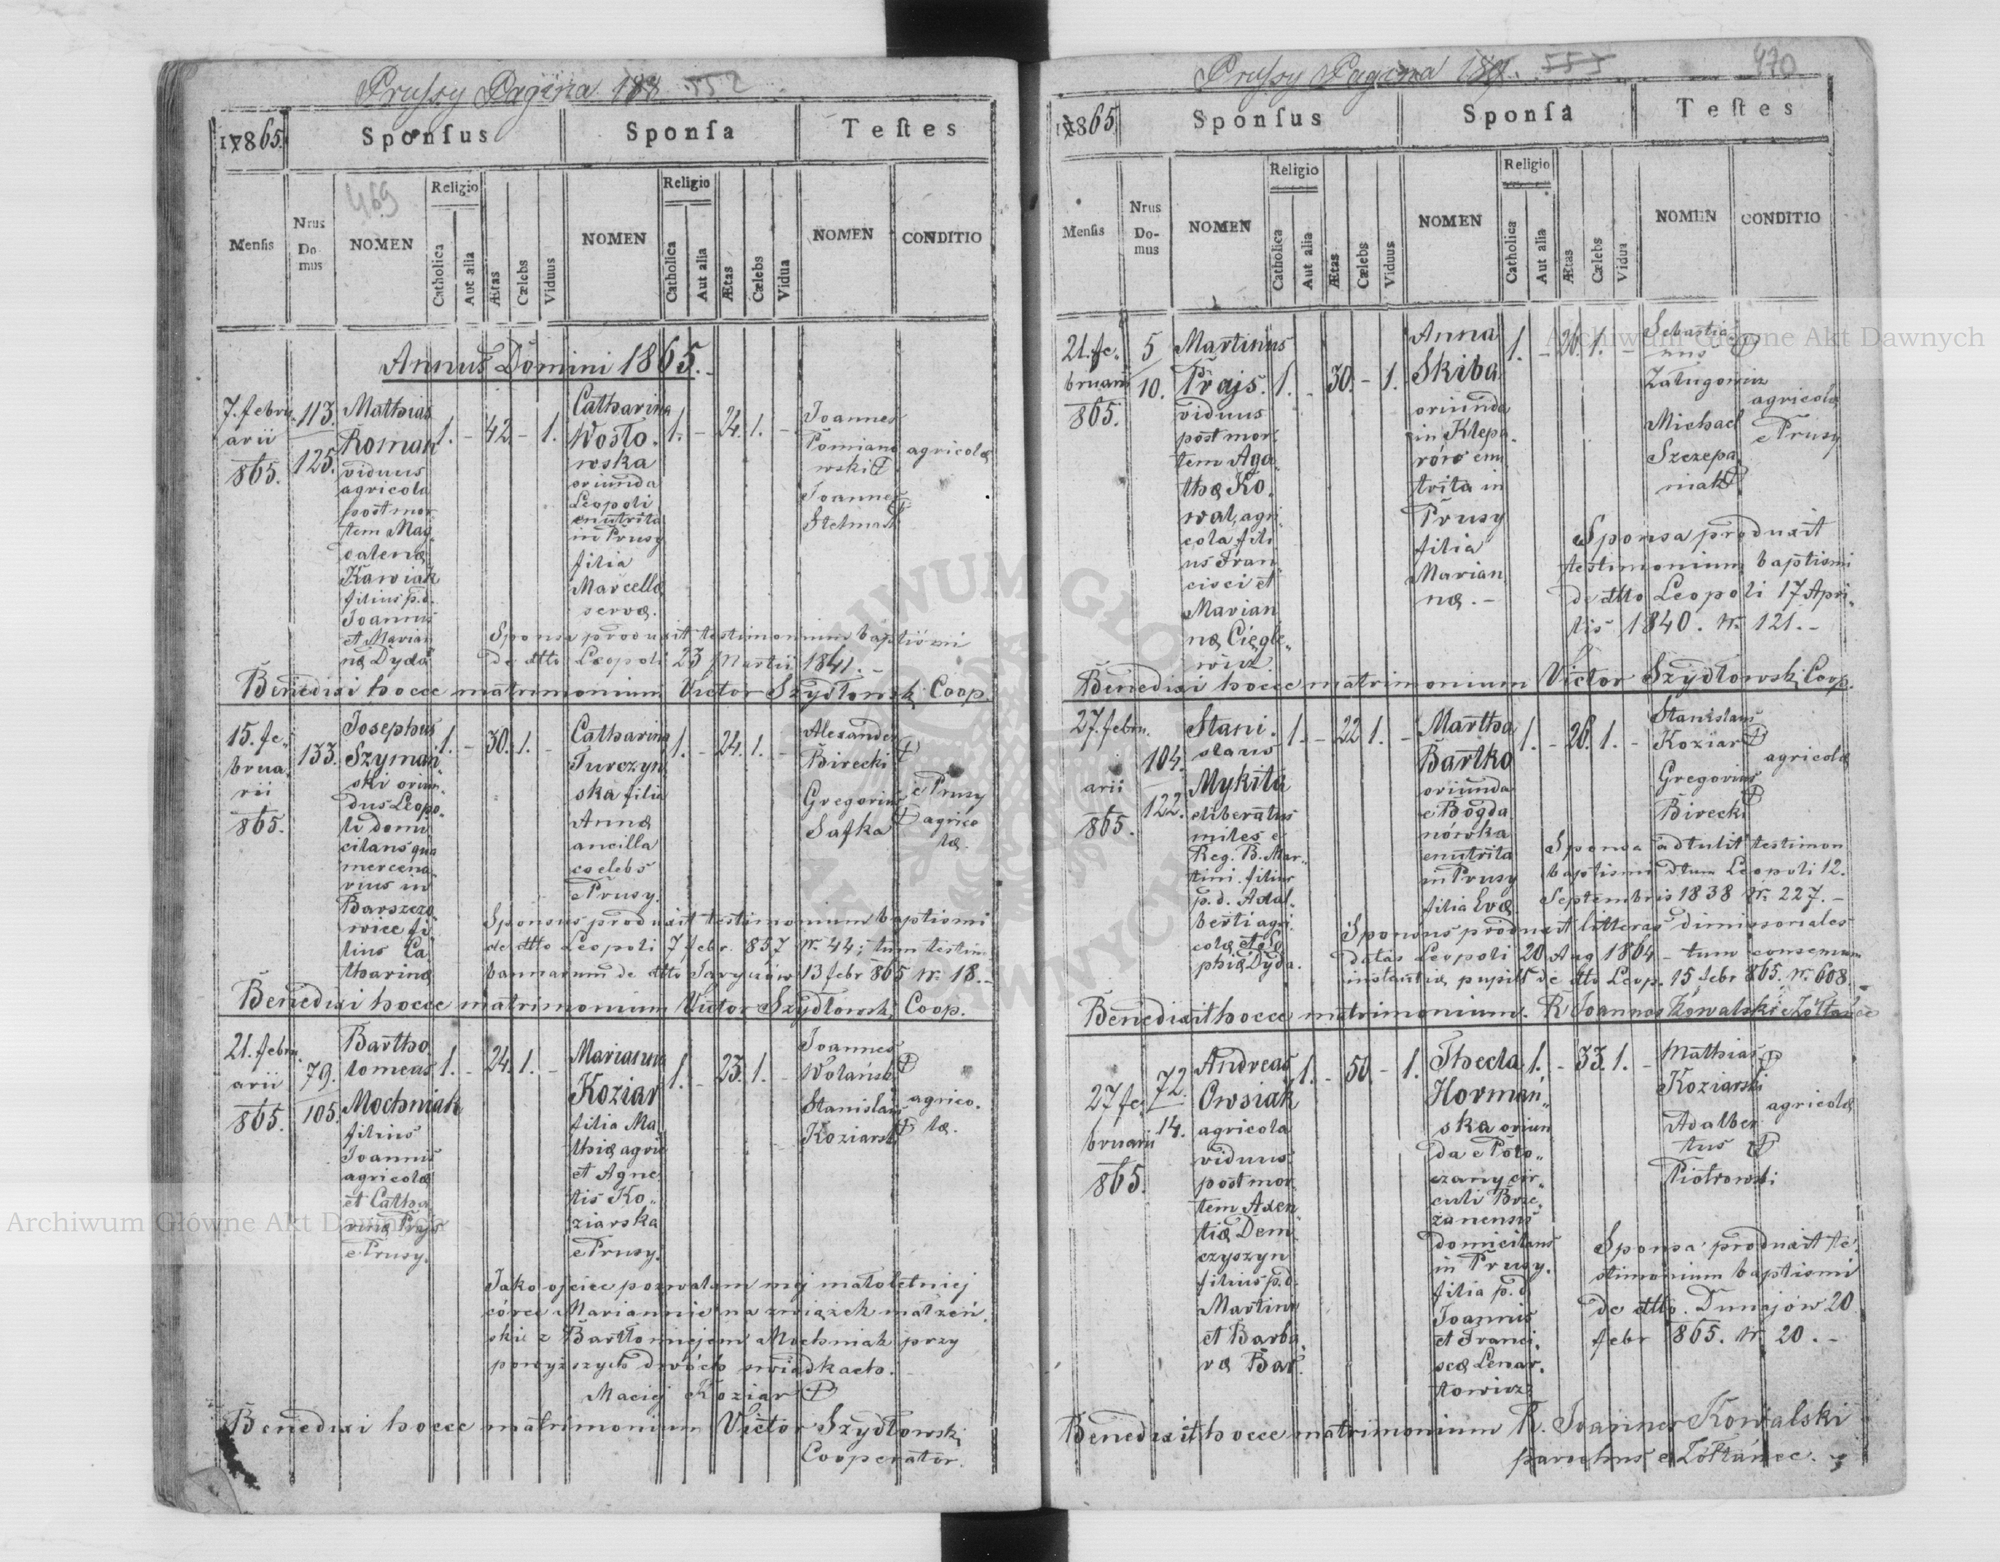 Prussy Pagina 188. 552
469
1865.
Sponſus
Sponſa
Teſtes
Menſis
Nrus Domus
NOMEN
Religio
Catholica
Aut alia
Ætas
Cælebs
Viduus
NOMEN
Religio
Catholica
Aut alia
Ætas
Cælebs
Vidua
NOMEN
CONDITIO
Annus Domini 1865.
7. febru
arii
865.
113.
125.
Mathias
Roman
viduus
agricola
post mor
tem Mag
dalenæ
Kawiak
filius p.d.
Joannis
et Marian
næ Dyda
1. - 42 - 1.
Catharina
Wosto
wska
oriunda
Leopoli
enutrita
in Prusy
filia
Marcellæ
servæ.
1. - 24. 1. -
Joannes
Pomiano
wski
Joannes
Stelmach
agricolæ
Sponsa produxit testimonium baptismi
de dtto Leopoli 23 Martii 1841. -
Benedixi hocce matrimonium Victor Szydłowski Coop.
15. fe
brua
rii
865.
133.
Josephus
Szyman
ski oriun
dus Leopo
li domi
cilans qua
mercena
rius in
Barszczo
wice fi
lius Ca
tharinæ
1. - 30. 1. -
Catharina
Turczyn
ska filia
Annæ
ancilla
coelebs
e Prusy.
1. - 24. 1. -
Alexander
Birecki
Gregorius
Safka
e Prusy
agrico
læ.
Sponsus produxit testimonium baptismi
de dtto Leopoli 7 febr. 837 Nr. 44; tum testim
bannorum de dtto Jaryczów 13 febr 865 Nr. 18. -
Benedixi hocce matrimonium Victor Szydłowski Coop.
21. febru
arii
865.
79.
105.
Bartho
lomeus
Mochniak
filius
Joannis
agricolæ
et Catha
rinæ Prajs
e Prusy.
1. - 24. 1. -
Marianna
Koziar
filia Ma
thiæ agric
et Agne
tis Ko
ziarska
e Prusy.
1. - 23. 1. -
Joannes
Wolański
Stanislaus
Koziarski
agrico.
læ.
Jako ojciec pozwalam mej małoletniej
córce Mariannie na związek małżeń
ski z Bartłomiejem Mochniak przy
powyższych dwóch swiadkach.
Maciej Koziar
Benedixi hocce matrimonium Victor Szydłowski
Cooperator.
Prussy Pagina 189. 555
470
1865
Sponſus
Sponſa
Teſtes
Menſis
Nrus Domus
NOMEN
Religio
Catholica
Aut alia
Ætas
Cælebs
Viduus
NOMEN
Religio
Catholica
Aut alia
Ætas
Cælebs
Vidua
NOMEN
CONDITIO
21. fe
bruarii
865.
5
10.
Martinus
Prajs.
viduus
post mor
tem Aga
thæ Ko
wal, agri
cola fili
us Fran
cisci et
Marian
næ Cięgle
wicz
1. - 30. - 1.
Anna
Skiba
oriunda
in Klepa
rów enu
trita in
Prusy
filia
Marian
næ. -
1. - 26. 1. -
Sebastia
nus
Załugowicz
Michael
Szczepa
niak
agricolæ
e Prusy
Sponsa produxit
testimonium baptismi
de dtto Leopoli 17 Apri
lis 1840. Nr. 121. -
Benedixi hocce matrimonium Victor Szydłowski Coop.
27. febru
arii
865.
104.
122.
Stani
slaus
Mykita
eliberatus
miles e
Reg. B. Mar
tini. filius
p.d. Adal
berti agri
colæ et So
phiæ Dyda.
1. - 22 1. -
Martha
Bartko
oriunda
e Bogda
nówka
enutrita
in Prusy
filia Evæ
1. - 26. 1. -
Stanislaus
Koziar
Gregorius
Birecki
agricolæ
Sponsa adtulit testimon
baptismi dtum Leopoli 12.
Septembris 1838 Nr. 227. -
Sponsus produxit litteras dimissionales
datas Leopoli 20 Aug 1864 - tum consensum
instantiæ pupill de dto Leop. 15 febr 865. Nr. 608. -
Benedixit hocce matrimonium. R. Joannes Kowalski e Żółtańce
27 fe
bruarii
865.
72.
14.
Andreas
Owsiak
agricola
viduus
post mor
tem Axen
tiæ Dem
czyszyn
filius p.d.
Martini
et Barba
ræ Bar
1. - 50. - 1.
Thecla
Horman
ska oriun
da e Poto
czany cir
culi Brze
zanensis
domicilans
in Prusy.
filia p.d.
Joannis
et Franci
scæ Lenar
towicz
1. - 33. 1. -
Mathias
Koziarski
Adalber
tus
Piotrowski
agricolæ
Sponsa produxit te
stimonium baptismi
de dtto. Dunajów 20
febr 865. Nr. 20. -
Benedixit hocce matrimonium R. Joannes Kowalski
parochus e Żółtańce.
Archiwum Główne Akt Dawnych
Archiwum Główne Akt Dawnych
ARCHIWUM GŁÓWNE AKT DAWNYCH